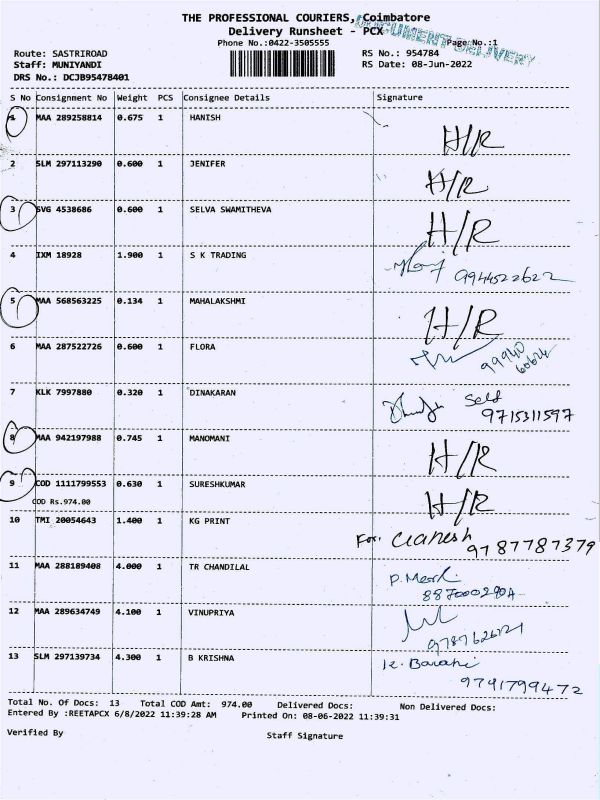 THE PROFESSIONAL COURIERS, Coimbatore
Delivery Runsheet - PCX
DOCUMENT DELIVERY
Phone No.:0422-3505555 Page No.:1
Route: SASTRIROAD RS No.: 954784
Staff: MUNIYANDI RS Date: 08-Jun-2022
DRS No.: DCJB95478401
S No Consignment No Weight PCS Consignee Details Signature
1 MAA 289258814 0.675 1 HANISH H/R
2 SLM 297113290 0.600 1 JENIFER H/R
3 SVG 4538686 0.600 1 SELVA SWAMITHEVA H/R
4 IXM 18928 1.900 1 S K TRADING 9944522622
5 MAA 568563225 0.134 1 MAHALAKSHMI H/R
6 MAA 287522726 0.600 1 FLORA 99940
60624
7 KLK 7997880 0.320 1 DINAKARAN Self
9715311597
8 MAA 942197988 0.745 1 MANOMANI H/R
9 COD 1111799553 0.630 1 SURESHKUMAR H/R
COD Rs.974.00
10 TMI 20054643 1.400 1 KG PRINT For. Ganesh
9787787379
11 MAA 288189408 4.000 1 TR CHANDILAL
12 MAA 289634749 4.100 1 VINUPRIYA
13 SLM 297139734 4.300 1 B KRISHNA
9791799472
Total No. Of Docs: 13 Total COD Amt: 974.00 Delivered Docs: Non Delivered Docs:
Entered By :REETAPCX 6/8/2022 11:39:28 AM Printed On: 08-06-2022 11:39:31
Verified By Staff Signature